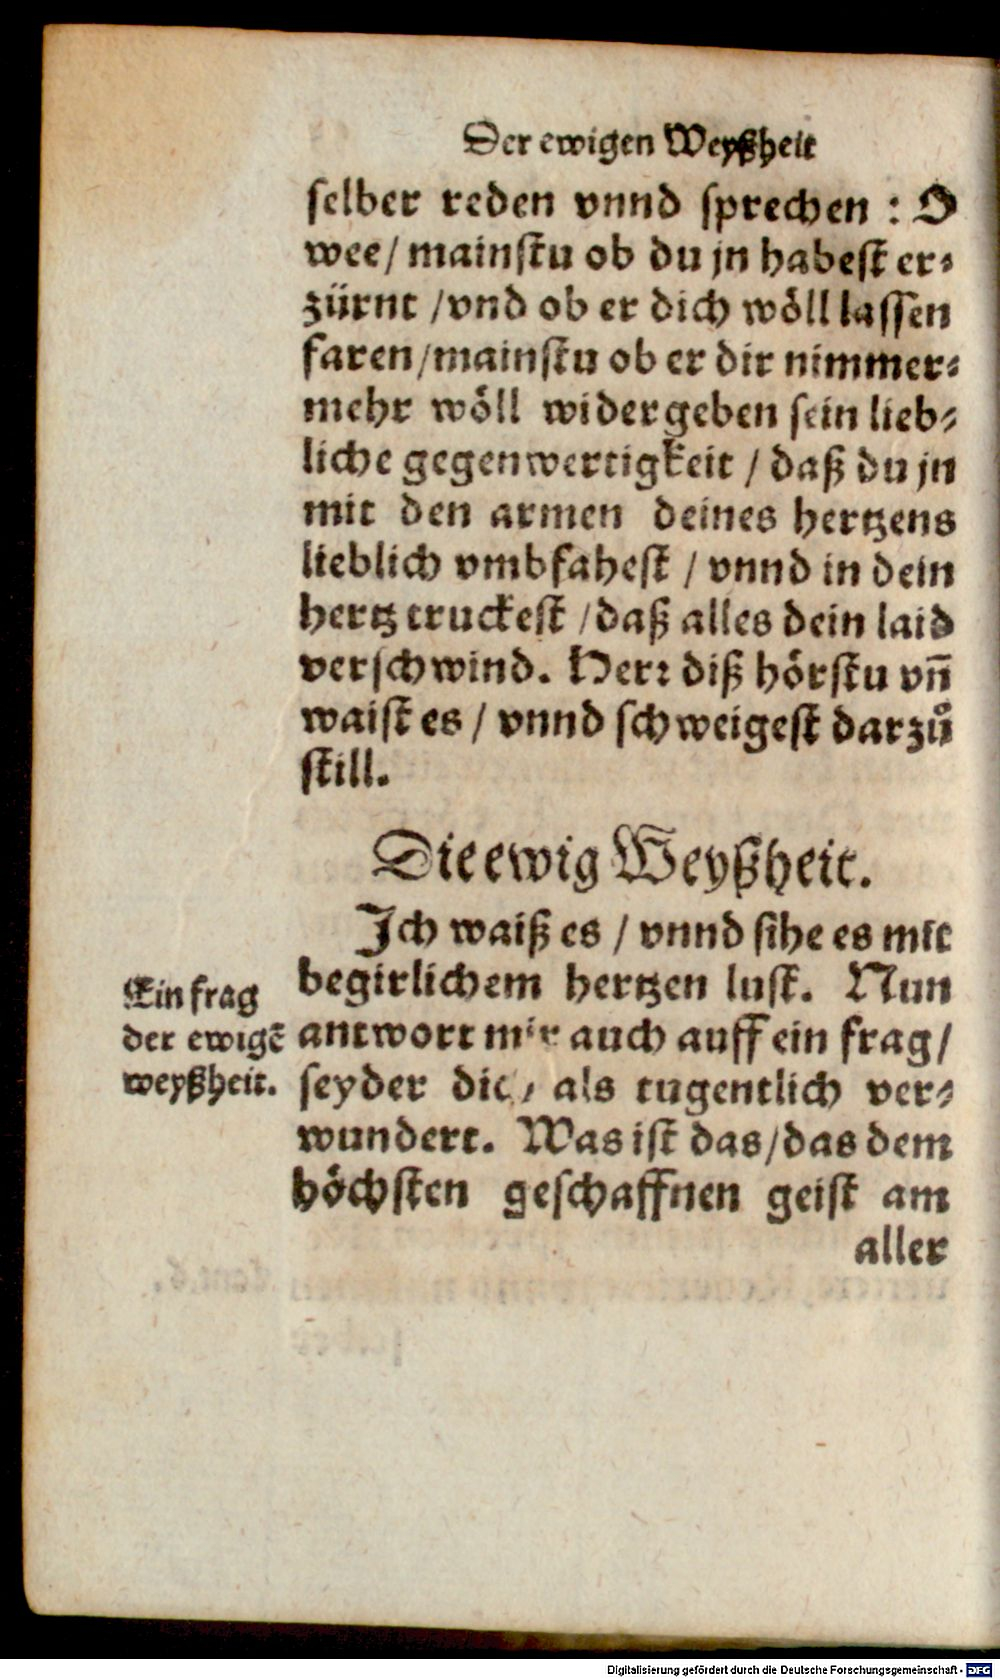 Der ewigen Weyßheit
selber reden vnnd sprechen : O
wee / mainstu ob du jn habest er⸗
zürnt / vnd ob er dich wöll lassen
faren / mainstu ob er dir nimmer⸗
mehr wöll widergeben sein lieb⸗
liche gegenwertigkeit / daß du jn
mit den armen deines hertzens
lieblich vmbfahest / vnnd in dein
hertz truckest / daß alles dein laid
verschwind. Herr diß hörstu vñ
waist es / vnnd schweigest darzů
still.
Die ewig Weyßheit.
Jch waiß es / vnnd sihe es mit
begirlichem hertzen lust. Nun
antwort mir auch auff ein frag /
seyder als tugentlich ver⸗
wundert. Was ist das / das dem
höchsten geschaffnen geist am
aller
Ein frag
der ewigẽ
weyßheit.
Digitalisierung gefördert durch die Deutsche Forschungsgemeinschaft - DFG